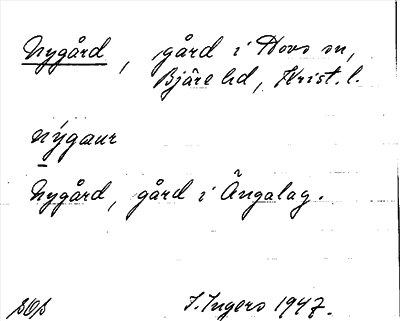 Nygård, gård i Hovs sn,
Bjäre hd, Krist. l.
nýgaur
Nygård, gård i Ängalag.
I. Ingers 1947.